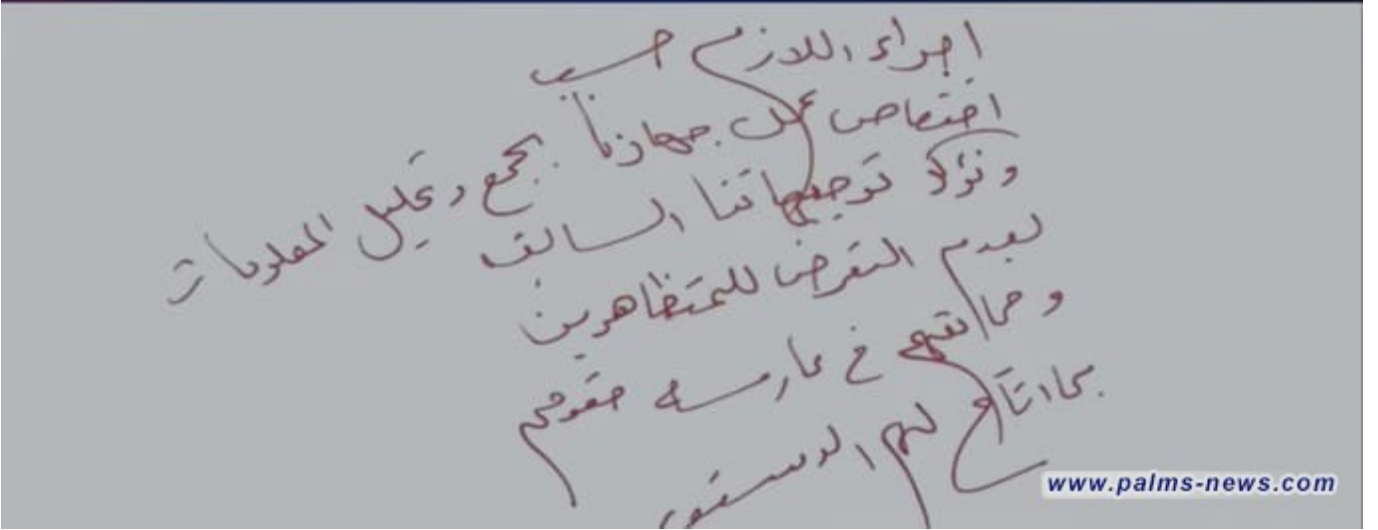 اجراء اللازم حسب
اختصاص عمل جهازنا بجمع وتحليل المعلومات
ونؤكد توجيهاتنا السالفة
لعدم التعرض للمتظاهرين
وحمايتهم في ممارسة حقوقهم
بما اتاح لهم الدستور
www.palms-news.com